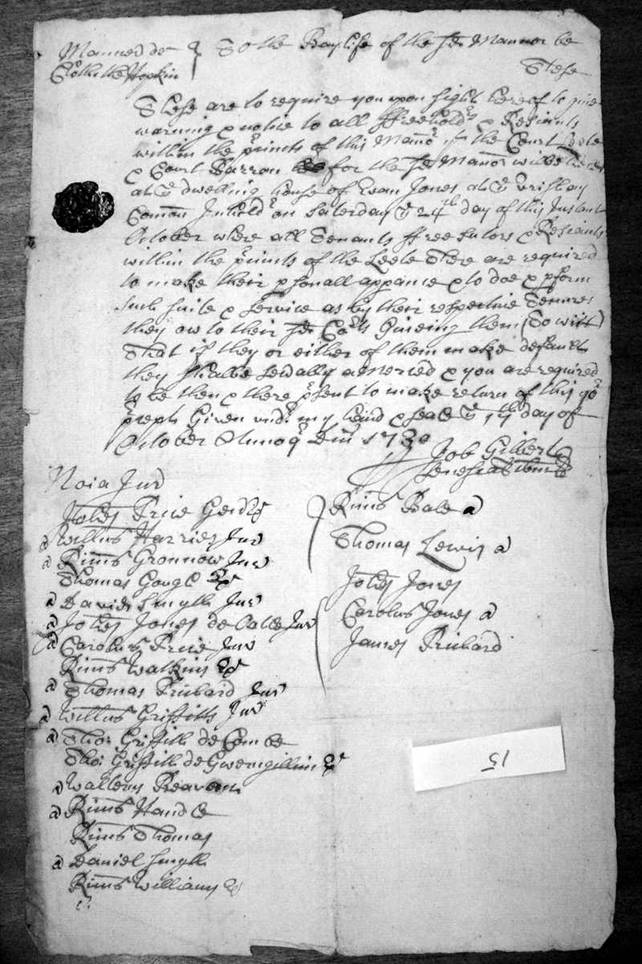 Manner de } To the Baylife of the sd Mannor be
These
These are to require you upon sight hereof to give
warning & notice to all ffreeholdrs & Resiants
within the prcincts of this Mannor that the Court Leete
& Court Barron for the sd Manor will be
att ye dwelling house of Evan Jones att ye
Comon on Saterday ye 24th day of this Instant
October where all Tenants ffree sutors & Resiants
within the prcincts of the Leete there are required
to make their psonall appance & to doe & pform
such suite & service as by their respective Tenures
they ow to their sd Court Giveing them (to witt)
that if they or either of them make default
they shalbe severally amerced & you are required
to be then & there psent to make return of this yor
precept Given undr my hand & seale ye day of
October Annoq Dm 1730
Job Gilbert
Noia Jur
Johes Price
a Willus Harries Jur
a Ricus Gronnow Jur
Thomas Gough
a David Smyth Jur
a Johes Jones de Jur
a Carolus Price Jur
Ricus Watkins
a Thomas Prichard Jur
a Willus Griffiths Jur
a Tho: Griffith de Combe
Tho: Griffith de Gwerngillin
a Walterus Beavans
a Ricus Hand
Ricus Thomas
a Daniel Smyth
Ricus Williams
Ricus Bate a
Thomas Lewis a
Johes Jones
Carolus Jones a
James Prichard
15